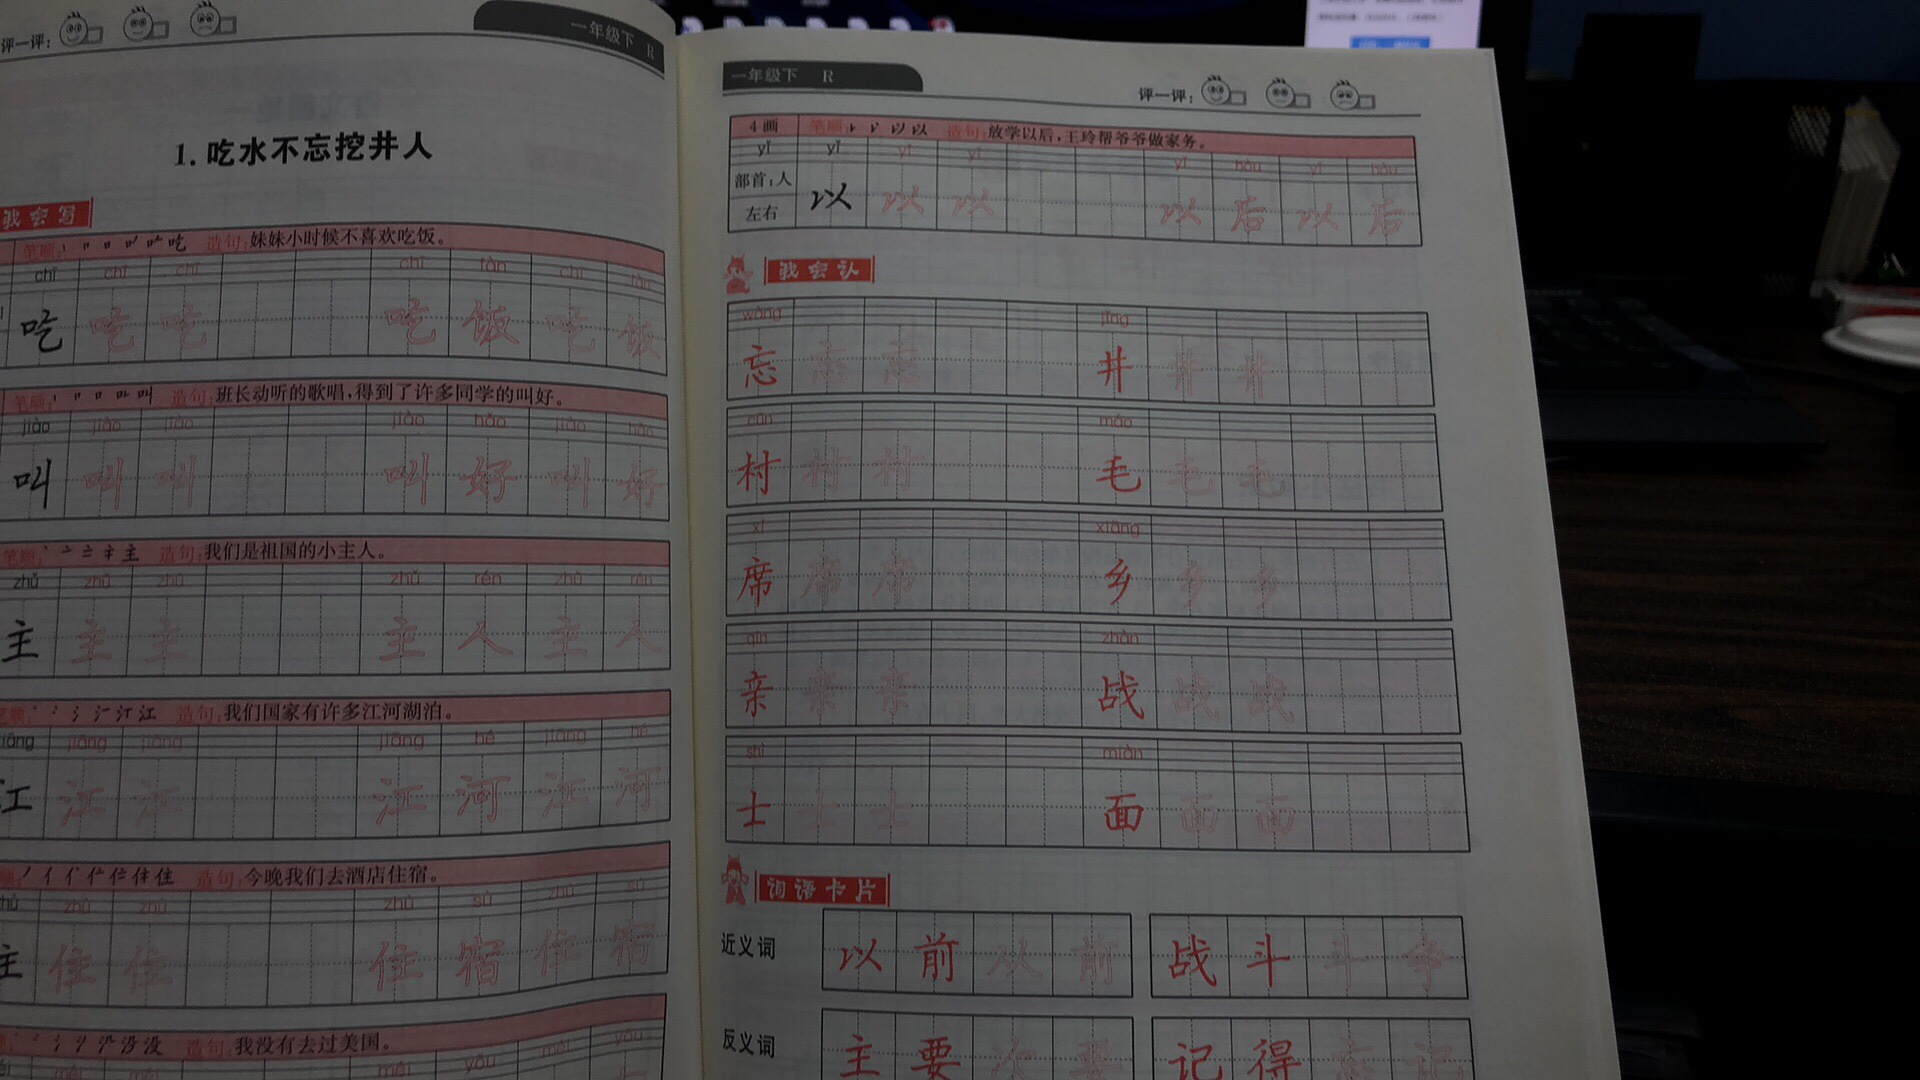 评一评:
一年级下 R
1.吃水不忘挖井人
我会写
笔顺: 吃 造句:妹妹小时候不喜欢吃饭。
chī chī chī chī fàn chī fàn
吃 吃 吃 吃 饭 吃 饭
笔顺: 叫 造句:班长动听的歌唱,得到了许多同学的叫好。
jiào jiào jiào jiào hǎo jiào hǎo
叫 叫 叫 叫 好 叫 好
笔顺: 主 造句:我们是祖国的小主人。
zhǔ zhǔ zhǔ zhǔ rén zhǔ rén
主 主 主 主 人 主 人
江 造句:我们国家有许多江河湖泊。
jiāng jiāng jiāng jiāng hé jiāng hé
江 江 江 江 河 江 河
住 造句:今晚我们去酒店住宿。
zhù zhù zhù zhù sù zhù sù
住 住 住 宿 住 宿
没 造句:我没有去过美国。
méi méi méi yǒu méi yǒu
一年级下 R
评一评:
4画 笔顺: 以 以 造句:放学以后,王玲帮爷爷做家务。
yǐ yǐ yǐ yǐ yǐ hòu yǐ hòu
部首:人
左右
以 以 以 以 后 以 后
我会认
wàng jǐng
忘 忘 忘 井 井 井
cūn máo
村 村 村 毛 毛 毛
xí xiāng
席 席 席 乡 乡 乡
qīn zhàn
亲 亲 亲 战 战 战
shì miàn
士 士 士 面 面 面
词语卡片
近义词 以前 从前 战斗 斗争
反义词 主要 次要 记得 忘记